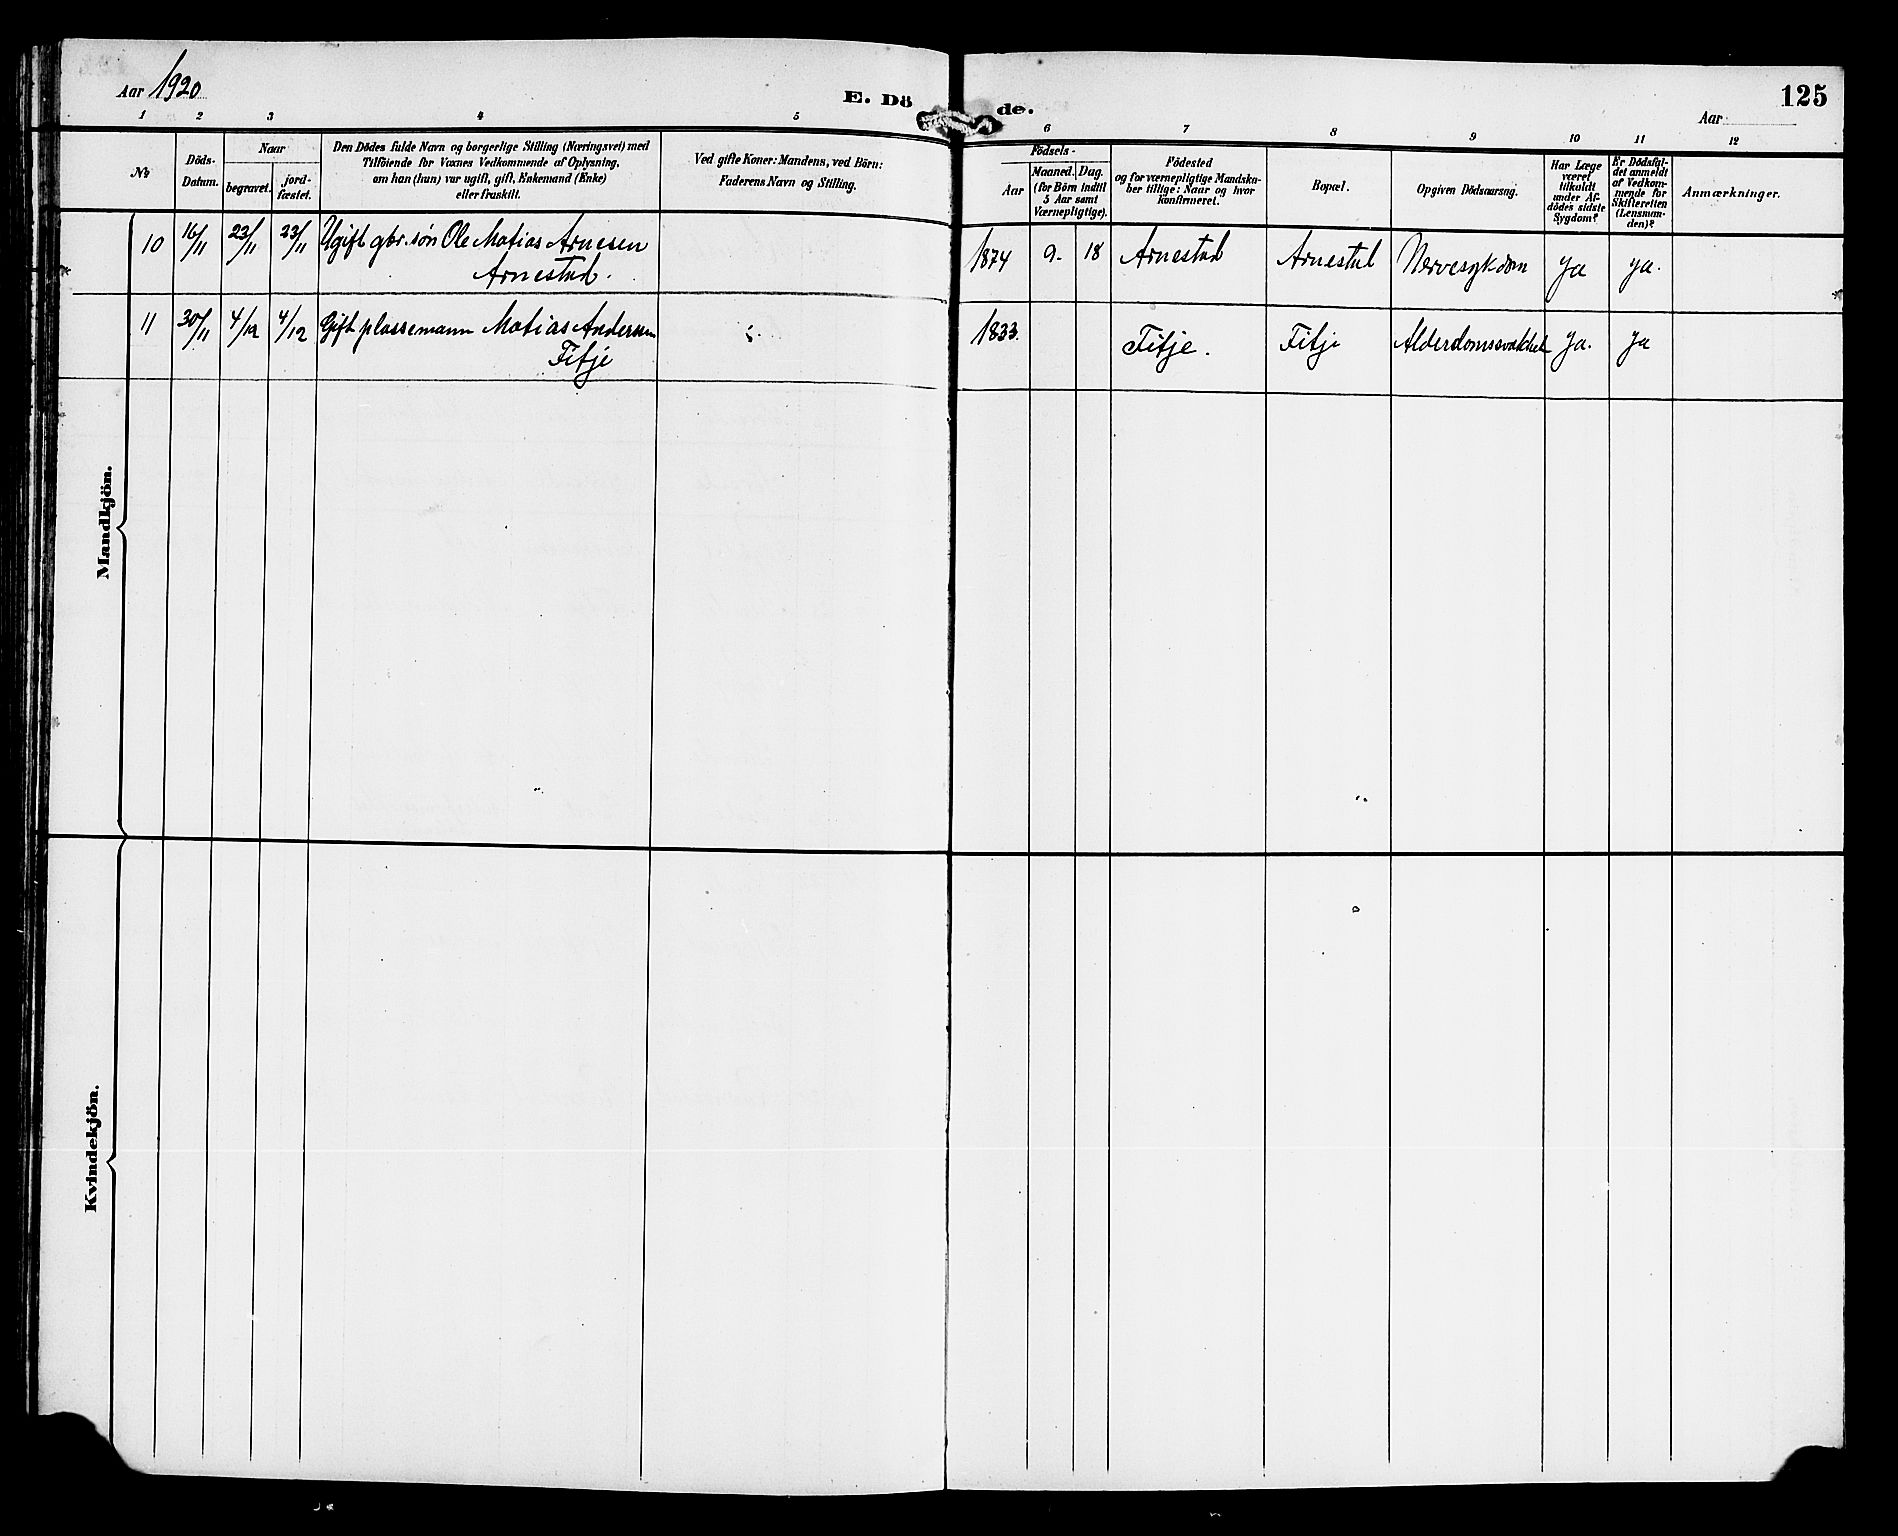 Aar 1920
E. Döde.
Aar
125
1 2 3 4 5 6 7 8 9 10 11 12
No
Döds-
Datum.
Naar
begravet.
jord-
fæstet.
Den Dödes fulde Navn og borgerlige Stilling (Næringsvei) med
Tilföiende for Voxnes Vedkommende af Oplysning,
om han (hun) var ugift, gift, Enkemand (Enke)
eller fraskilt.
Ved gifte Koner: Mandens, ved Börn:
Faderens Navn og Stilling.
Födsels-
Aar
Maaned. Dag.
(for Börn indtil
5 Aar samt
Værnepligtige).
Födested
og for værnepligtige Mandska-
ber tillige: Naar og hvor
konfirmeret.
Bopæl.
Opgiven Dödsaarsag.
Har Læge
været
tilkaldt
under Af-
dödes sidste
Sygdom?
Er Dödsfal-
det anmeldt
af Vedkom-
mende for
Skifteretten
(Lensman-
den)?
Anmærkninger.
Mandkjön.
10 16/11 23/11 23/11 Ugift gbr. sön Ole Matias Arnesen
Arnestad.
1874 9. 18 Arnestad Arnestad Nervesykdom ja ja.
11 30/11 4/12 4/12 Gift plassemann Matias Andersen
Fitje
1833. Fitje. Fitje Alderdomssvakhet ja. ja
Kvindekjön.